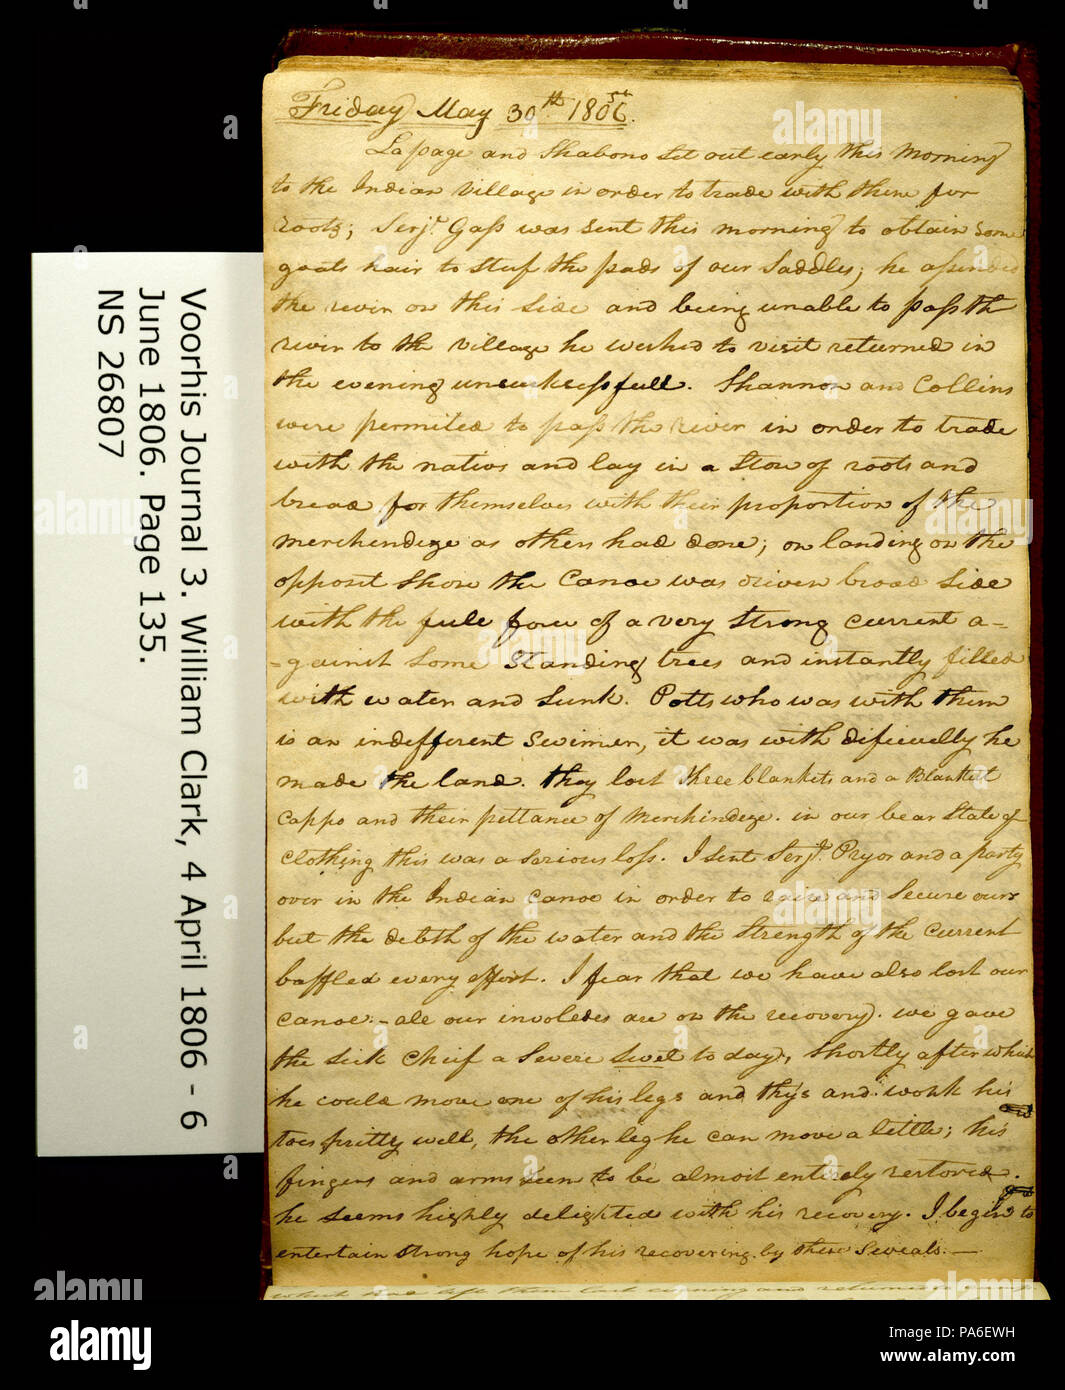 Friday May 30th 1806.
Lapage and Shabono Set out early this morning
to the Indian Village in order to trade with them for
roots; Serjt. Gass was sent this morning to obtain some
goats hair to stuf the pads of our Saddles; he assended
the river on this side and being unable to pass the
river to the village he wished to visit returned in
the evening unsucksessfull. Shannon and Collins
were permited to pass the river in order to trade
with the nativs and lay in a Store of roots and
bread for themselves with their proportion of the
merchendize as others had done; on landing on the
opposit Shore the Canoe was driven broad Side
with the full force of a very Strong current a-
-gainst Some Standing trees and instantly filled
with water and Sunk. Potts who was with them
is an indifferent Swimer, it was with dificuelty he
made the land. they lost three blankets and a Blanket
Cappo and their pittance of Merchindize. in our bear State of
Clothing this was a serious loss. I Sent Serjt. Pryor and a party
over in the Indian Canoe in order to raise and Secure ours
but the debth of the water and the Strength of the Current
baffled every effort. I fear that we have also lost our
Canoe.- all our involedes are on the recovery. we gave
the Sick Chief a Severe Swet to day, Shortly after which
he could move one of his legs and thy's and work his
toes pritty well, the other leg he can move a little; his
fingers and arms Seem to be almost entirely restored.
he Seems highly delighted with his recovery. I begin to
entertain Strong hope of his recovering by these Sweats.-
Voorhis Journal 3. William Clark, 4 April 1806 - 6
June 1806. Page 135.
NS 26807
alamy
Image ID: PA6EWH
www.alamy.com